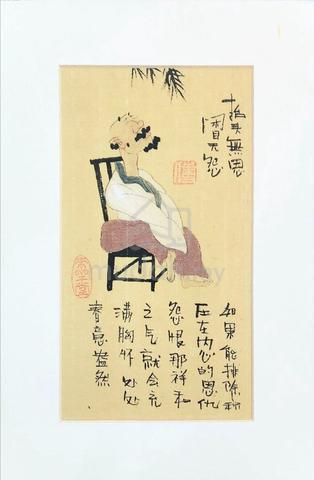 抬头無恩
闭目无怨
如果能排除积
压在内心的恩仇
怨恨那祥和
之气就会充
满胸怀处处
春意盎然